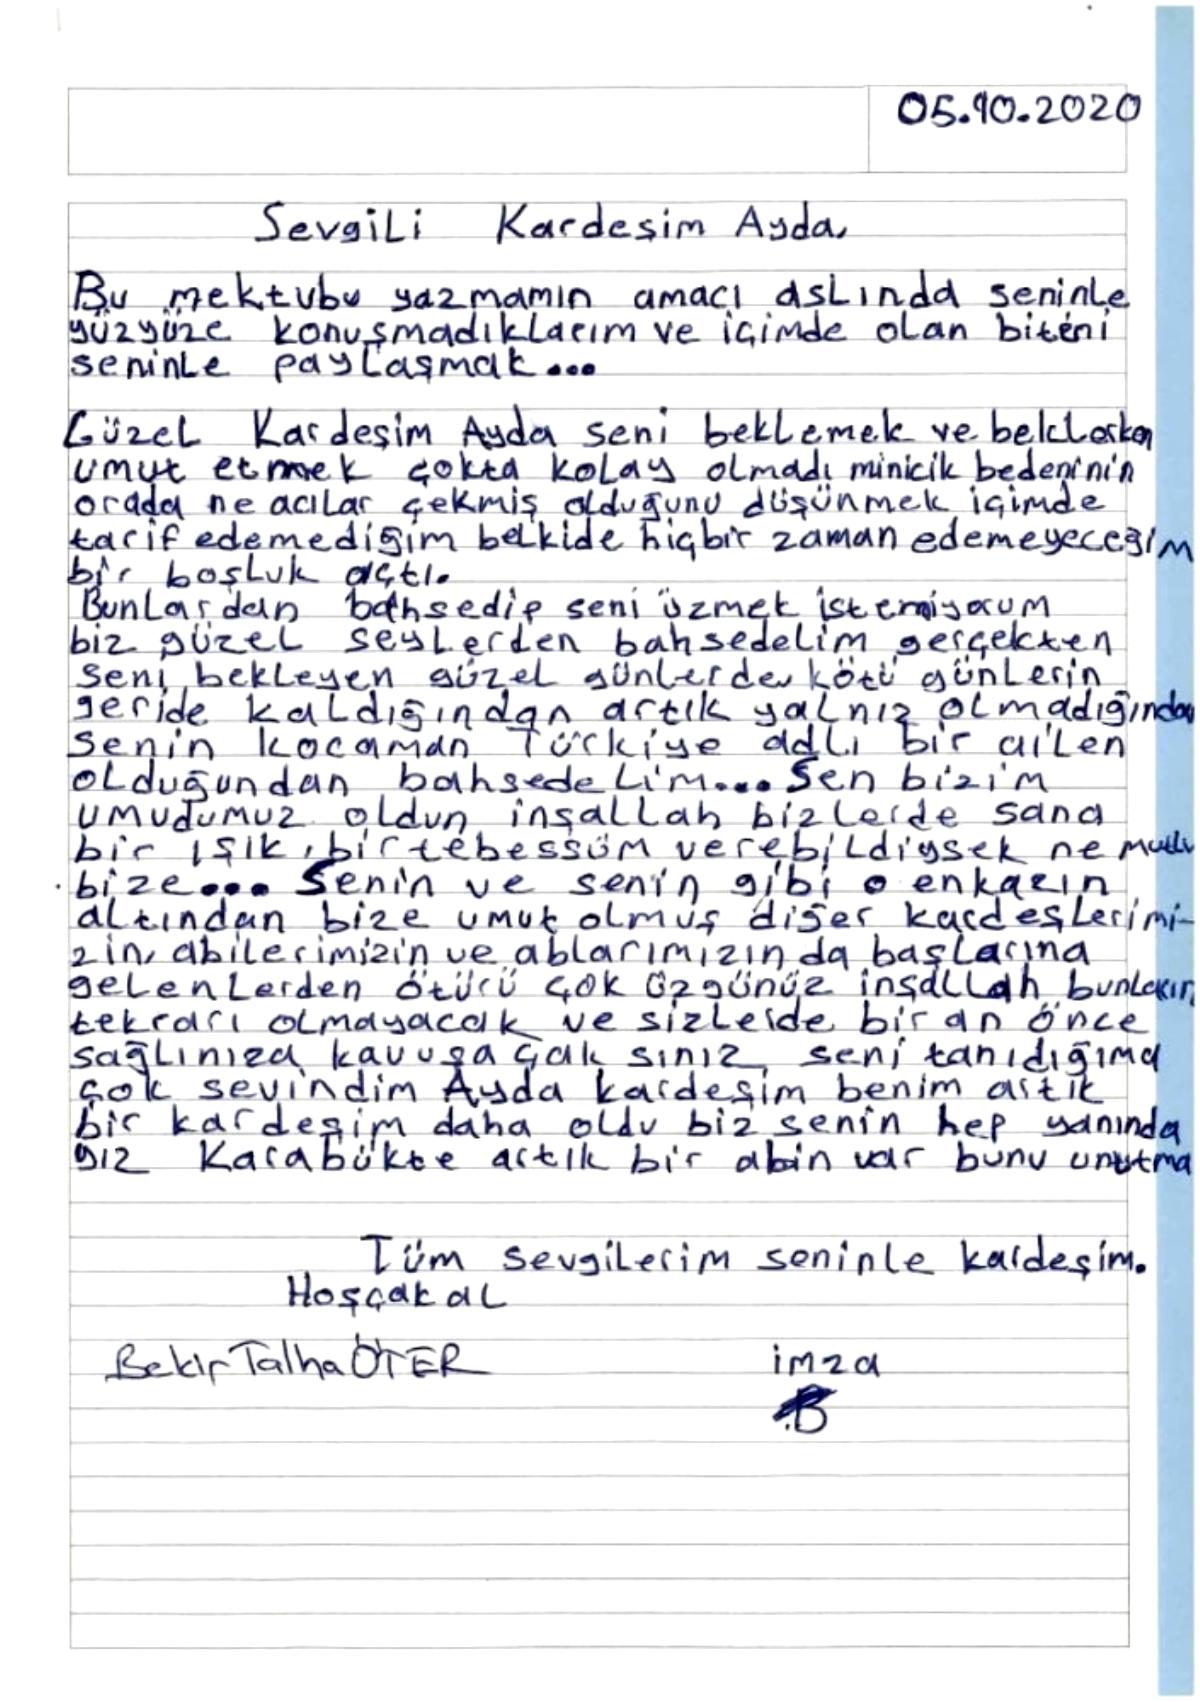 05.10.2020
Sevgili Kardeşim Ayda,
Bu mektubu yazmamın amacı aslında seninle
yüzyüze konuşmadıklarım ve içimde olan biteni
seninle paylaşmak...
Güzel Kardeşim Ayda seni beklemek ve beklerken
umut etmek çokta kolay olmadı minicik bedeninin
orada ne acılar çekmiş olduğunu düşünmek içimde
tarif edemediğim belkide hiçbir zaman edemeyeceğim
bir boşluk açtı.
Bunlardan bahsedip seni üzmek istemiyorum
biz güzel şeylerden bahsedelim gerçekten
seni bekleyen güzel günlerden kötü günlerin
geride kaldığından artık yalnız olmadığından
senin kocaman Türkiye adlı bir ailen
olduğundan bahsedelim... Sen bizim
umudumuz oldun inşallah bizlerde sana
bir ışık, bir tebessüm verebildiysek ne mutlu
bize... Senin ve senin gibi o enkazın
altından bize umut olmuş diğer kardeşlerimi-
zin, abilerimizin ve ablarımızın da başlarına
gelenlerden ötürü çok üzgünüz inşallah bunların
tekrarı olmayacak ve sizlerde bir an önce
sağlınıza kavuşacaksınız, seni tanıdığıma
çok sevindim Ayda kardeşim benim artık
bir kardeşim daha oldu biz senin hep yanında
yız Karabükte artık bir abin var bunu unutma
Tüm sevgilerim seninle kardeşim.
Hoşçakal
Bekir Talha ÖTER imza
B